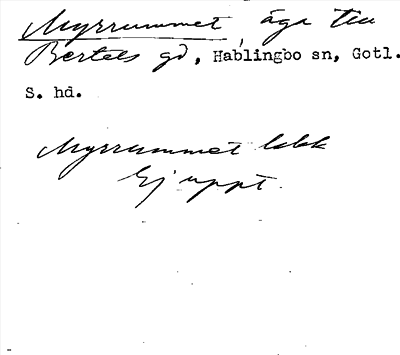 Myrrummet, äga till
Bertels gd, Hablingbo sn, Gotl.
S. hd.
Myrrummet lbbk
Ej uppt.